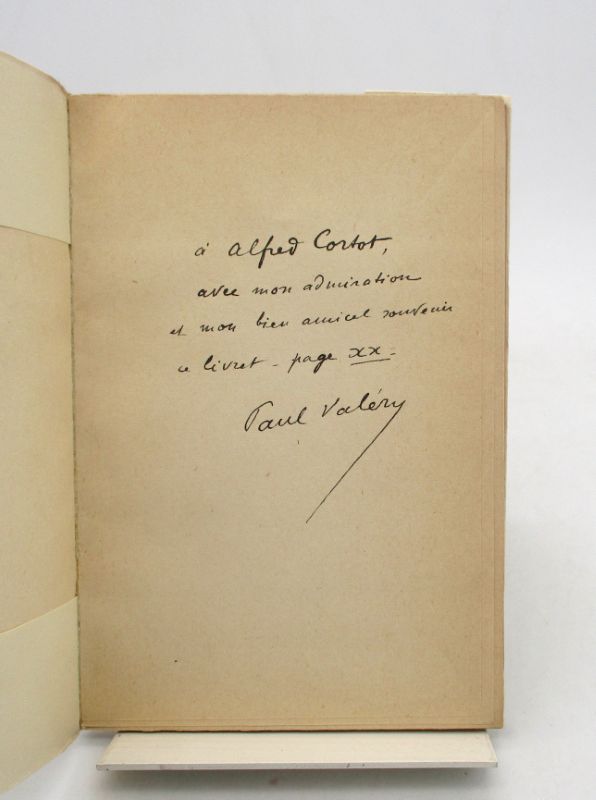 à Alfred Cortot,
avec mon admiration
et mon bien amical souvenir
ce livret - page xx -
Paul Valéry